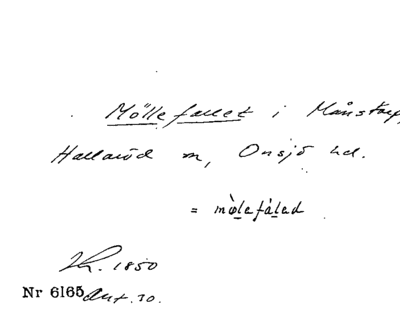 Möllefallet i Månstorp,
Hallaröd sn, Onsjö hd.
= mø̀lefáled
Kr. 1850
Nr 6165 Ant. 30.